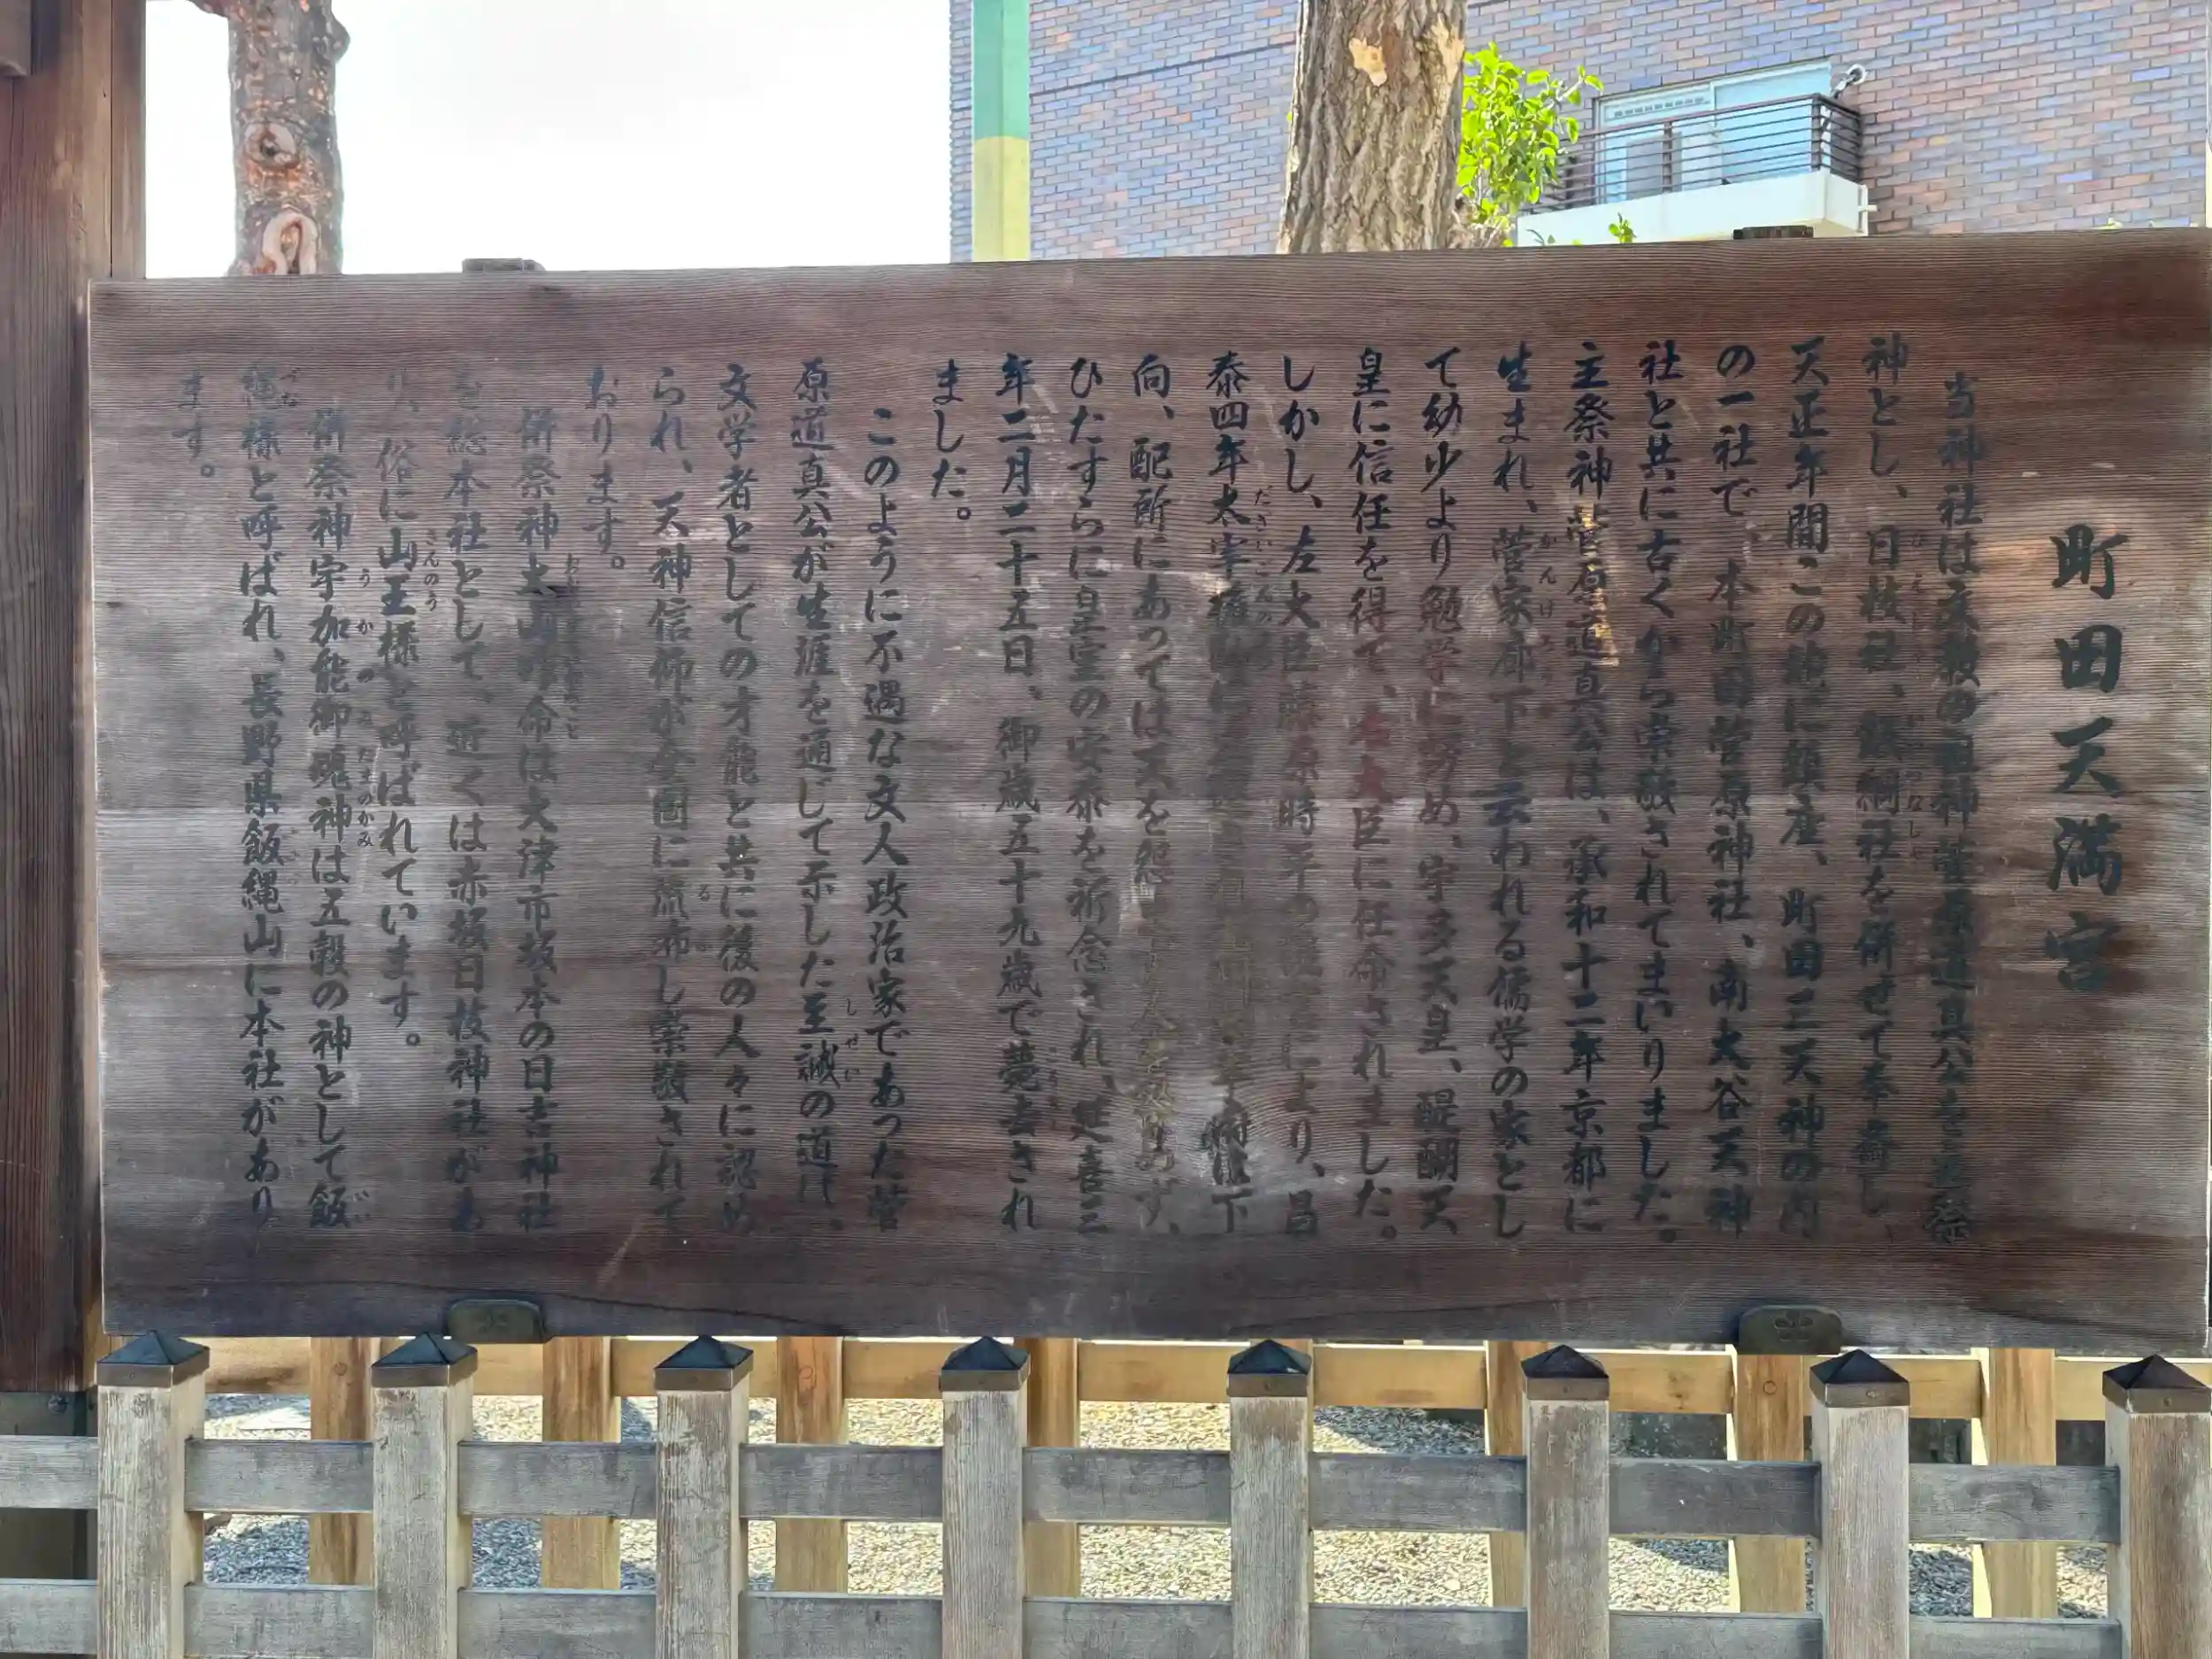 町田天満宮
当神社は文教の祖神菅原道真公を主祭
神とし、日枝社、飯綱社を併せて奉斎し、
天正年間この地に鎮座、町田三天神の内
の一社で、本町田菅原神社、南大谷天神
社と共に古くから崇敬されてまいりました。
主祭神菅原道真公は、承和十二年京都に
生まれ、菅家廊下と云われる儒学の家とし
て幼少より勉学に努め、宇多天皇、醍醐天
皇に信任を得て、右大臣に任命されました。
しかし、左大臣藤原時平の により、昌
泰四年太宰権 下
向、配所にあっては天を怨 ず、
ひたすらに皇室の安泰を祈念され、延喜三
年二月二十五日、御歳五十九歳で薨去され
ました。
このように不遇な文人政治家であった菅
原道真公が生涯を通して示した至誠の道は、
文学者としての才能と共に後の人々に認め
られ、天神信仰が全国に流布し崇敬されて
おります。
併祭神大山咋命は大津市坂本の日吉神社
を総本社として、近くは赤坂日枝神社があ
り、俗に山王様と呼ばれています。
併祭神宇加能御魂神は五穀の神として飯
縄様と呼ばれ、長野県飯縄山に本社があり
ます。